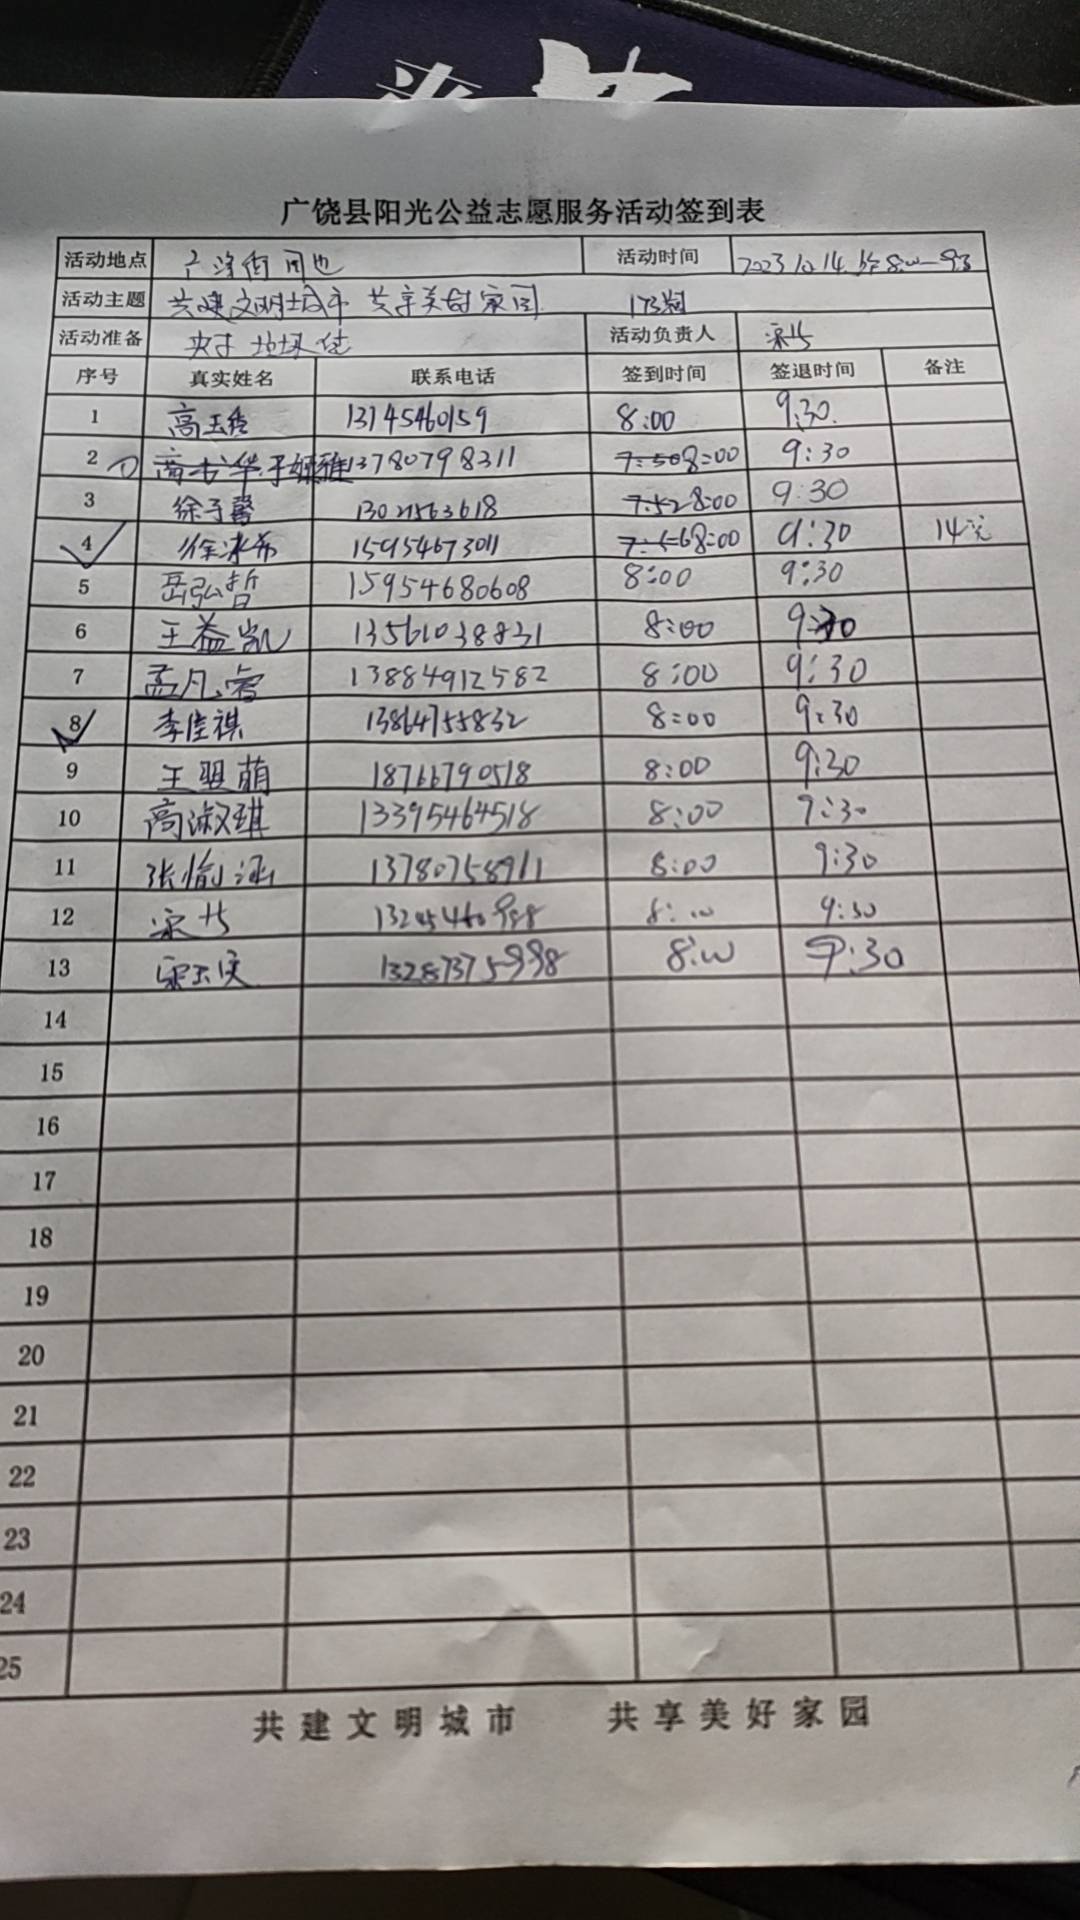 广饶县阳光公益志愿服务活动签到表
活动地点 活动时间 2023.10.14.
活动主题 共建文明城市 共享美好家园 173期
活动准备 夹子 垃圾袋 活动负责人
序号 真实姓名 联系电话 签到时间 签退时间 备注
1 高玉 8:00 9:30
2 13780798311 7:50 8:00 9:30
3 徐子馨 7:52 8:00 9:30
4 徐冰希 15954673011 8:00 9:30 14元
5 岳弘哲 15954680608 8:00 9:30
6 王益凯 13561038831 8:00 9:30
7 孟凡 13884912582 8:00 9:30
8 李佳祺 13864755832 8:00 9:30
9 王明萌 18766790518 8:00 9:30
10 高淑琪 13395464518 8:00 9:30
11 张愉涵 13780758911 8:00 9:30
12 8:00 9:30
13 13287375998 8:00 9:30
14
15
16
17
18
19
20
21
22
23
24
25
共建文明城市 共享美好家园